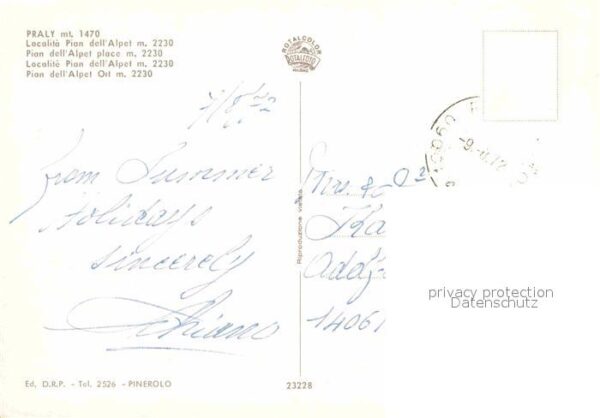 PRALY mt. 1470
Località Pian dell'Alpet m. 2230
Pian dell'Alpet place m. 2230
Localité Pian dell'Alpet m. 2230
Pian dell'Alpet Ort m. 2230
ROTALCOLOR
ROTALFOTO
7/8/72
from Summer
Holidays
sincerely
Riproduzione vietata
Ka
14061
privacy protection
Datenschutz
Ed. D.R.P. - Tel. 2526 - PINEROLO
23228